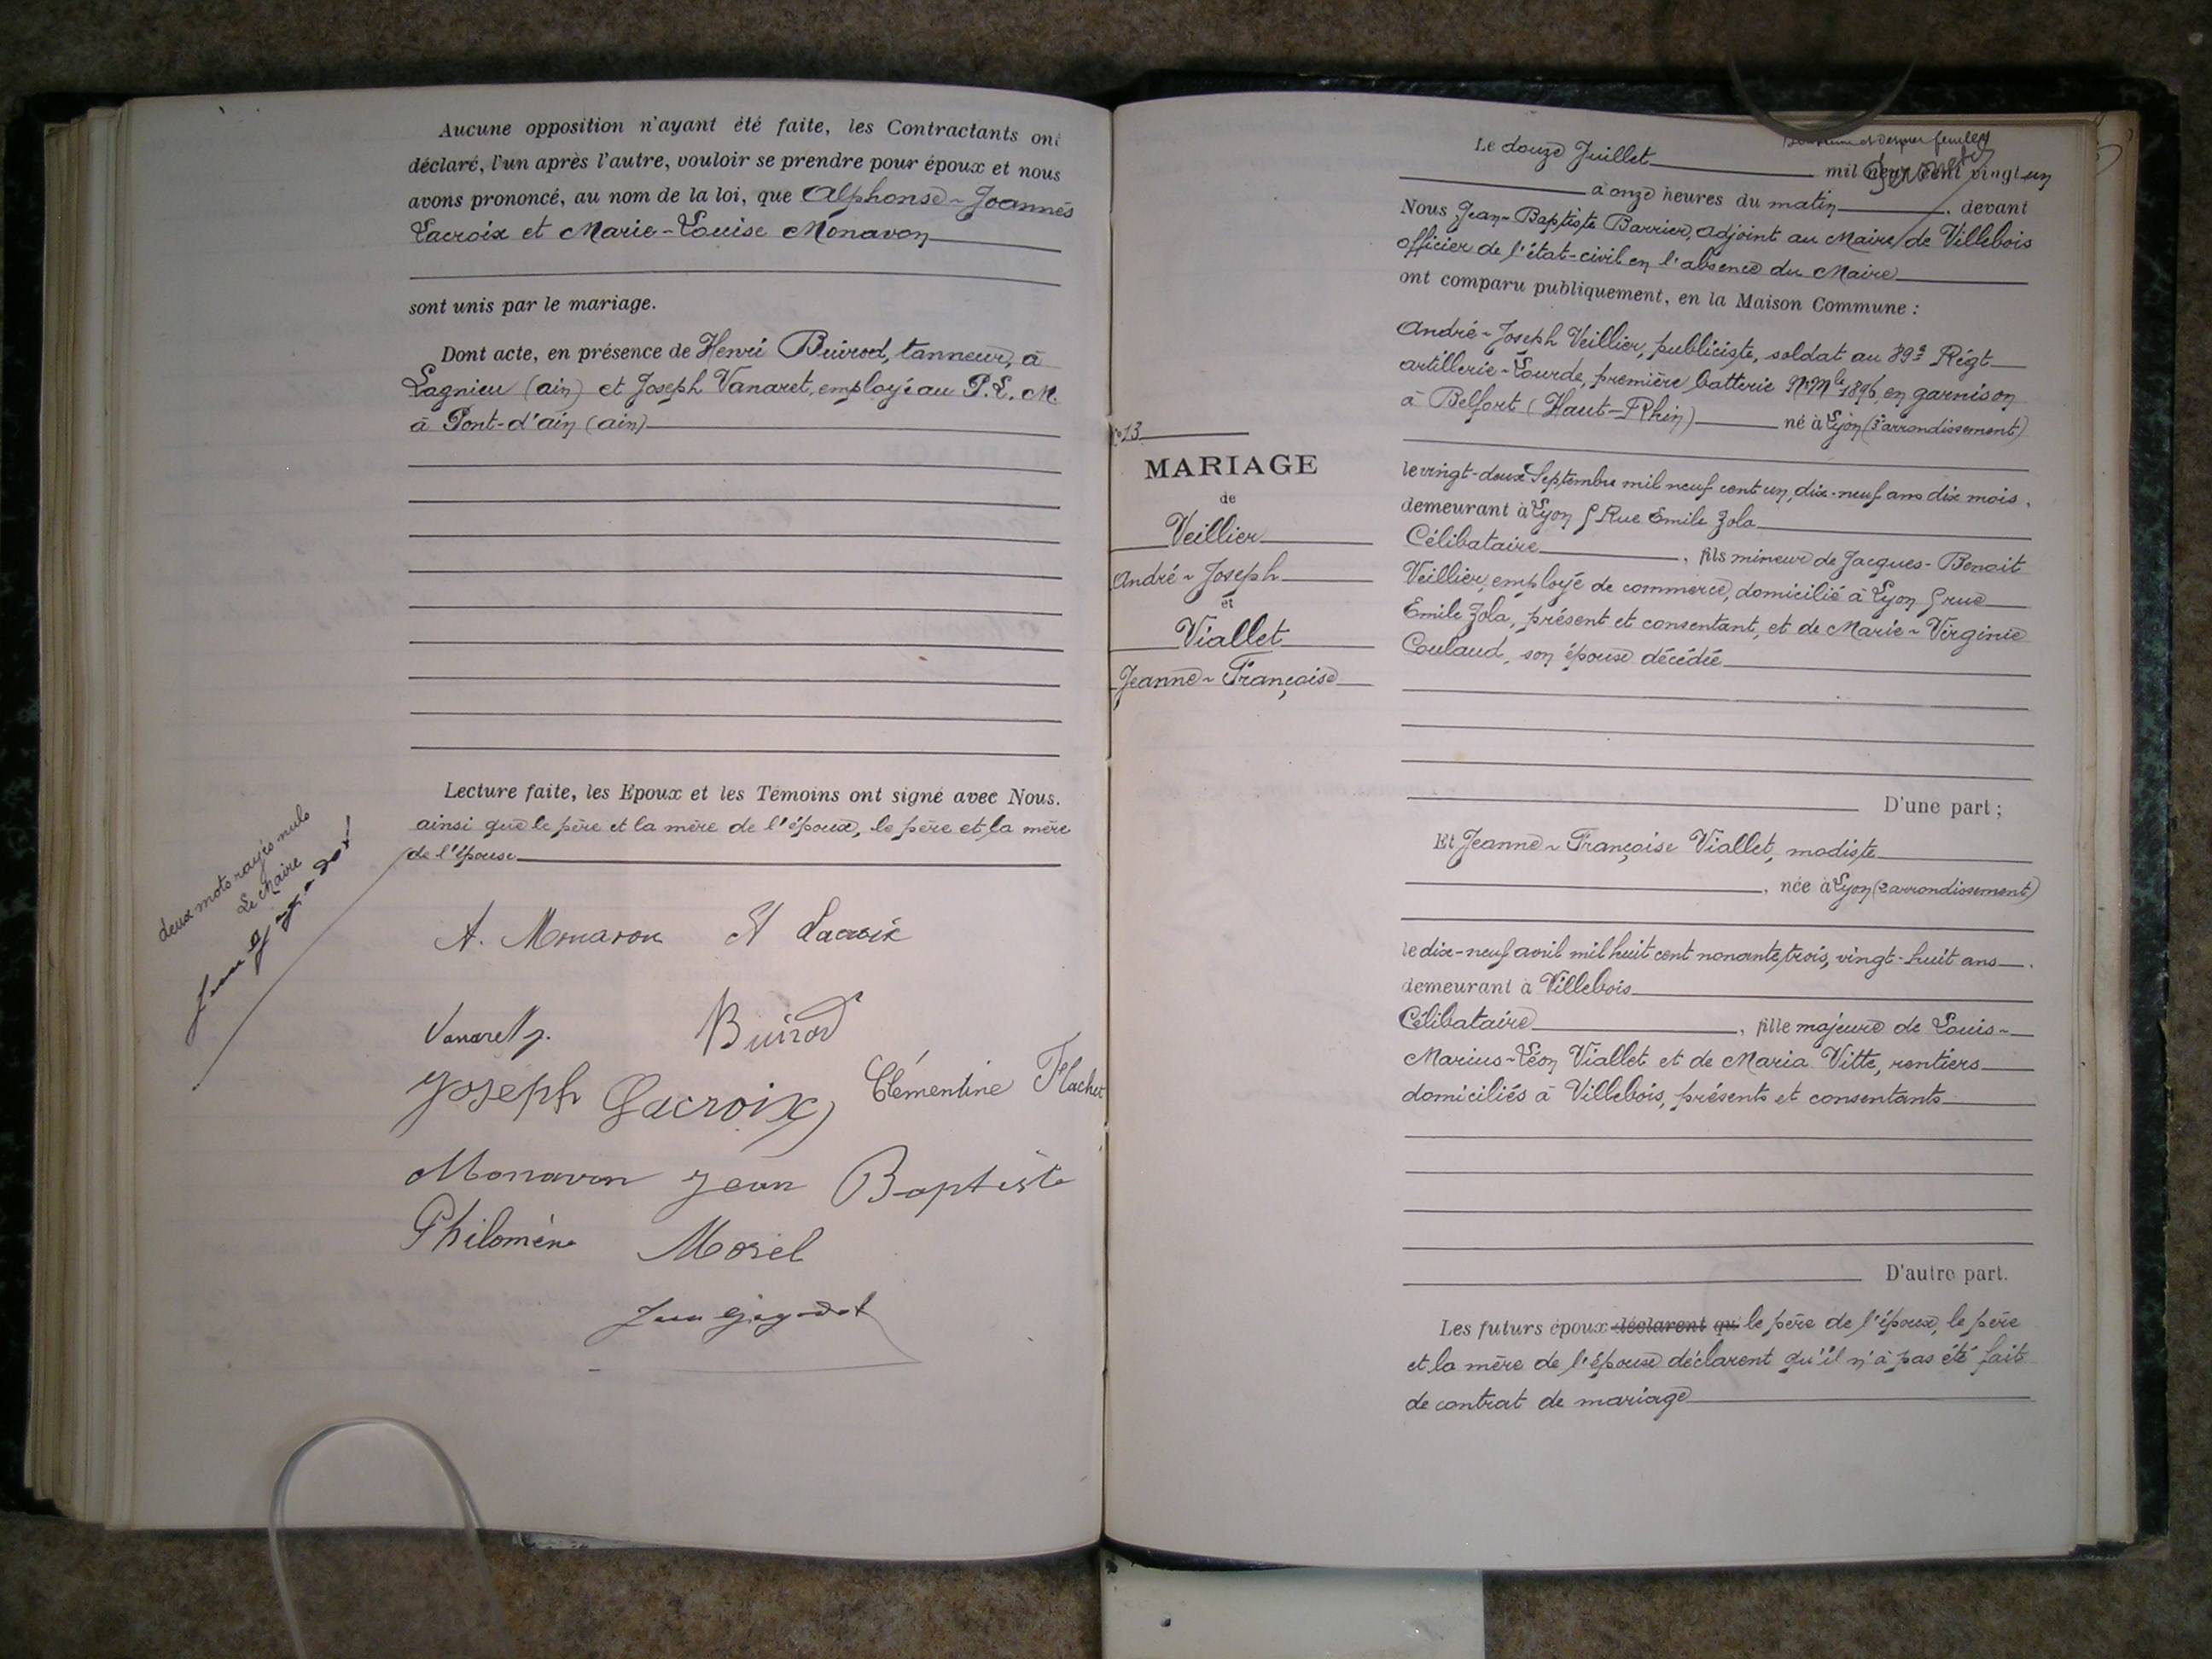 Aucune opposition n'ayant été faite, les Contractants ont
déclaré, l'un après l'autre, vouloir se prendre pour époux et nous
avons prononcé, au nom de la loi, que Alphonse-Joannès
Lacroix et Marie-Louise Monavon
sont unis par le mariage.
Dont acte, en présence de Henri Buirod, tanneur, à
Lagnieu (ain) et Joseph Vanaret, employé au P.L.M.
à Pont-d'ain (ain)
Lecture faite, les Epoux et les Témoins ont signé avec Nous.
ainsi que le père et la mère de l'époux, le père et la mère
de l'épouse
deux mots rayés nuls
Le Maire
A. Monavon A Lacroix
Vanaret J. Buirod
Joseph Lacroix Clémentine Flachet
Monavon Jean Baptiste
Philomène Morel
N° 13
MARIAGE
de
Veillier
André-Joseph
et
Viallet
Jeanne-Françoise
et dernier feuillet
Le douze Juillet mil neuf cent vingt un
à onze heures du matin, devant
Nous Jean-Baptiste Barrier, adjoint au Maire de Villebois
officier de l'état-civil en l'absence du Maire
ont comparu publiquement, en la Maison Commune :
André-Joseph Veillier, publiciste, soldat au 89e Régt
artillerie-Lourde, première batterie N° Mle 1896, en garnison
à Belfort (Haut-Rhin) né à Lyon (3e arrondissement)
le vingt-deux Septembre mil neuf cent un, dix-neuf ans dix mois.
demeurant à Lyon 5 Rue Emile Zola
Célibataire, fils mineur de Jacques-Benoit
Veillier, employé de commerce, domicilié à Lyon 5 rue
Emile Zola, présent et consentant, et de Marie-Virginie
Coulaud, son épouse décédée
D'une part ;
Et Jeanne-Françoise Viallet, modiste
, née à Lyon (2 arrondissement)
le dix-neuf avril mil huit cent nonante trois, vingt-huit ans.
demeurant à Villebois
Célibataire, fille majeure de Louis-
Marius-Léon Viallet et de Maria Vitte, rentiers
domiciliés à Villebois, présents et consentants
D'autre part.
Les futurs époux déclarent qu le père de l'époux, le père
et la mère de l'épouse déclarent qu'il n'à pas été fait
de contrat de mariage